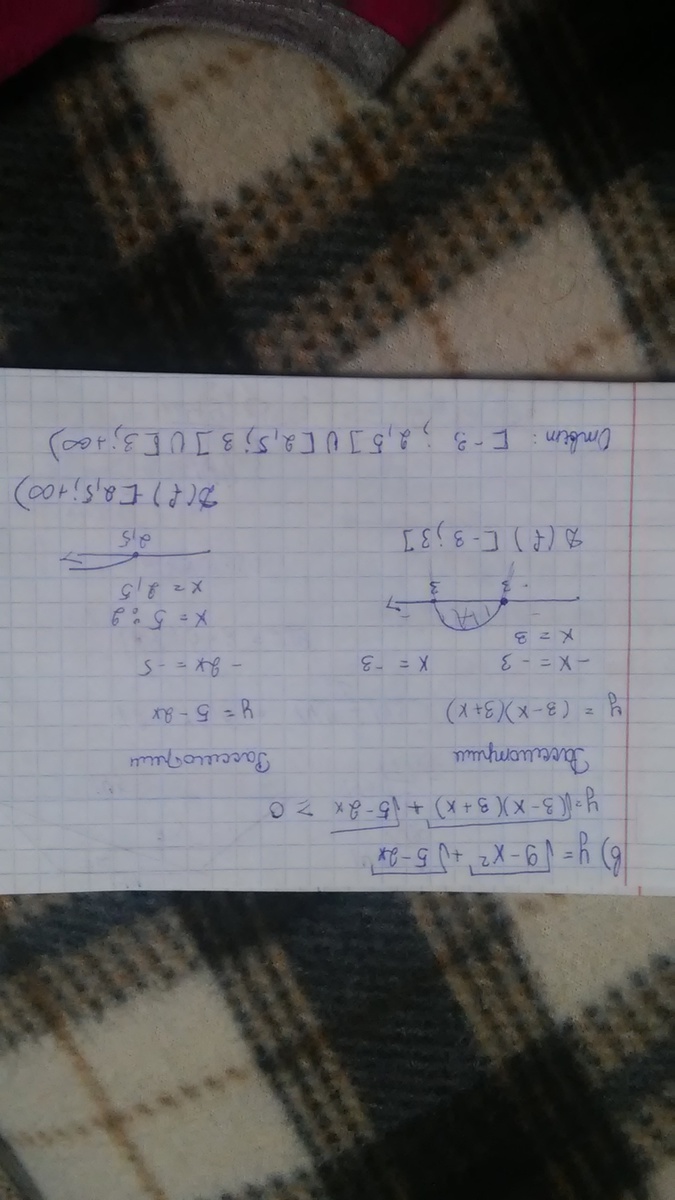 в) y = √9-x² + √5-2x
y = √(3-x)(3+x) + √5-2x ≥ 0
Рассмотрим Рассмотрим
y = (3-x)(3+x) y = 5-2x
-x = -3 x = -3 -2x = -5
x = 3 x = 5:2
x = 2,5
- + -
-3 3
2,5
D(f) [-3; 3]
D(f) [2,5; +∞)
Ответ: [-3 ; 2,5] U [2,5; 3] U [3; +∞)